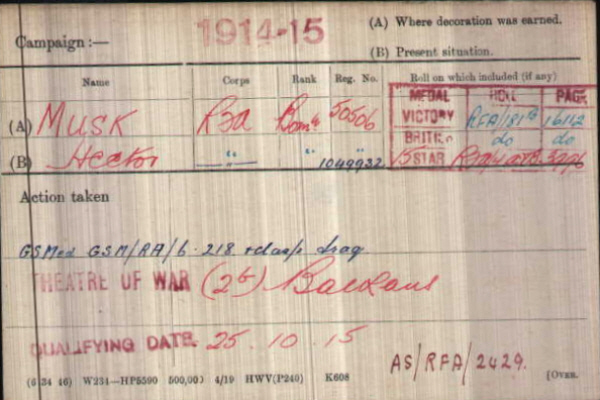 1914-15
(A) Where decoration was earned.
Campaign :—
(B) Present situation.
Name Corps Rank Reg. No. Roll on which included (if any)
MEDAL ROLL PAGE
(A) MUSK RFA 50506 VICTORY RFA/181B 16112
BRITISH do do
(B) Hector " " 1049932 15 STAR
Action taken
GSMed GSM/RA/6. 218 + clasp Iraq
THEATRE OF WAR (2b) Balkans
QUALIFYING DATE. 25. 10. 15
AS/RFA/2429.
(6 34 46) W234—HP5590 500,000 4/19 HWV(P240) K608 [OVER.